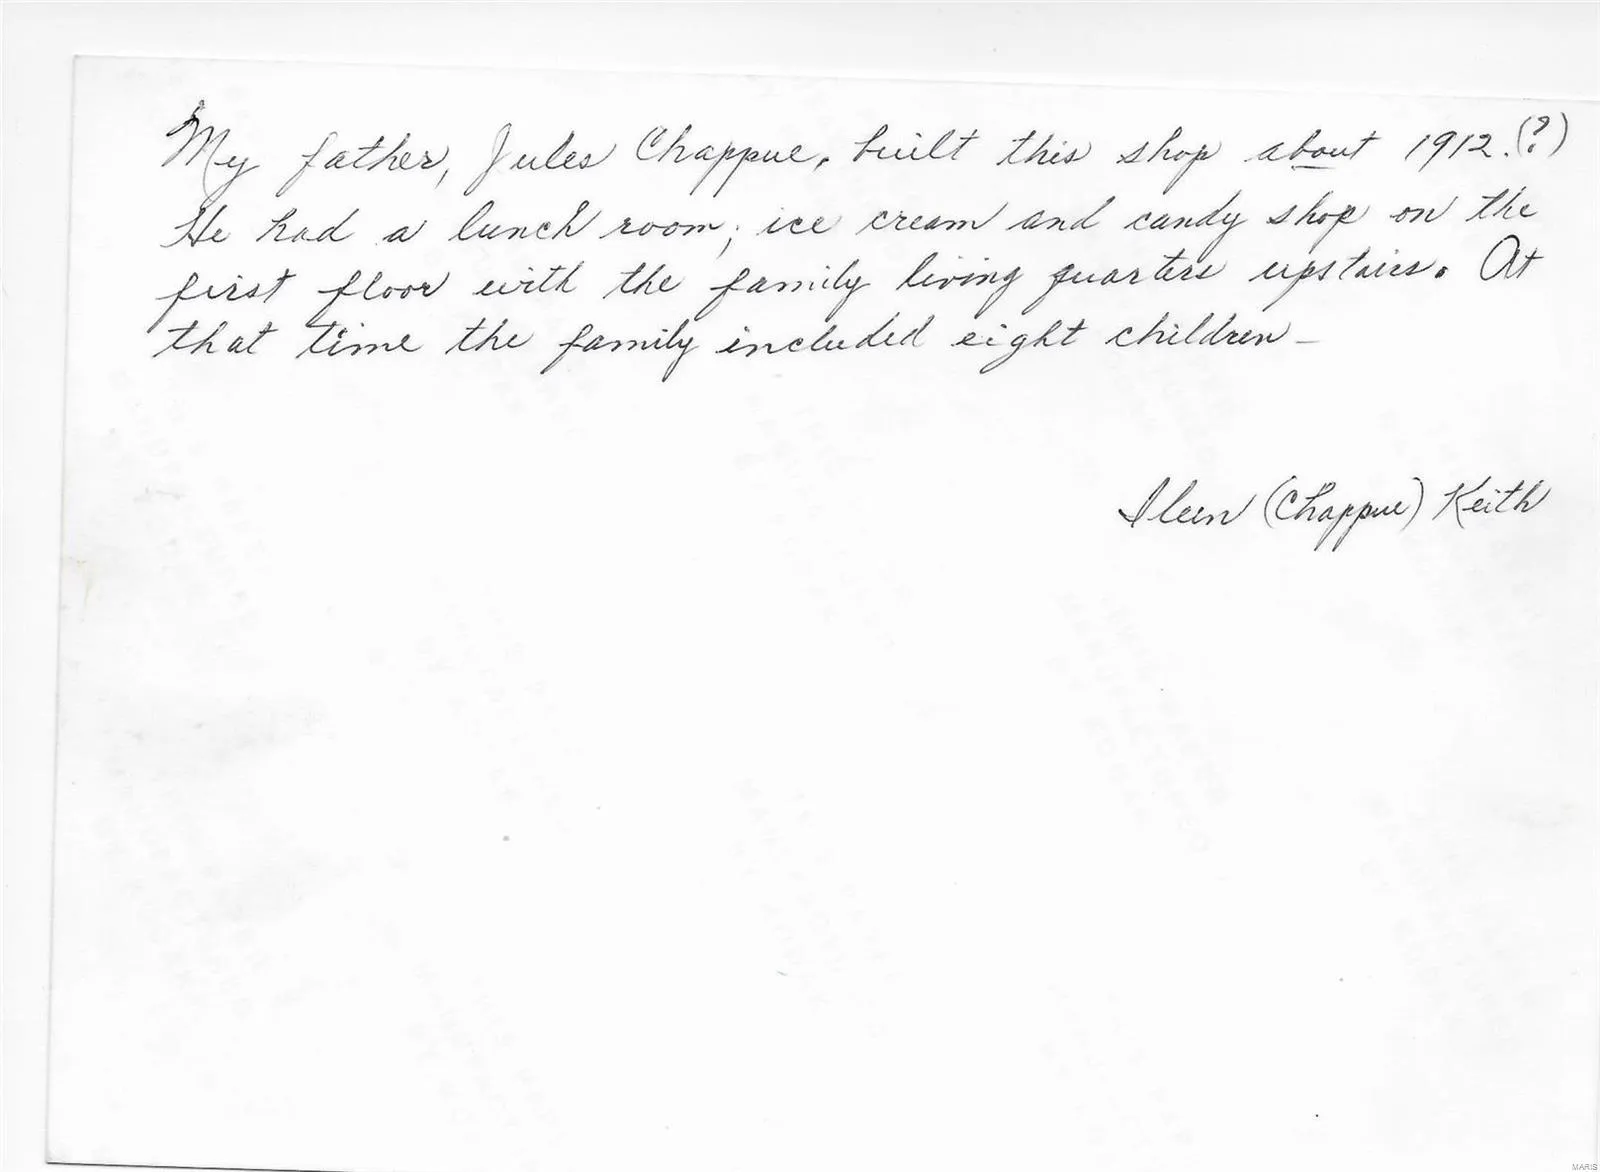 My father, Jules Chappue, built this shop about 1912.(?)
He had a lunch room, ice cream and candy shop on the
first floor with the family living quarters upstairs. At
that time the family included eight children –
Ileen (Chappue) Keith
MARIS